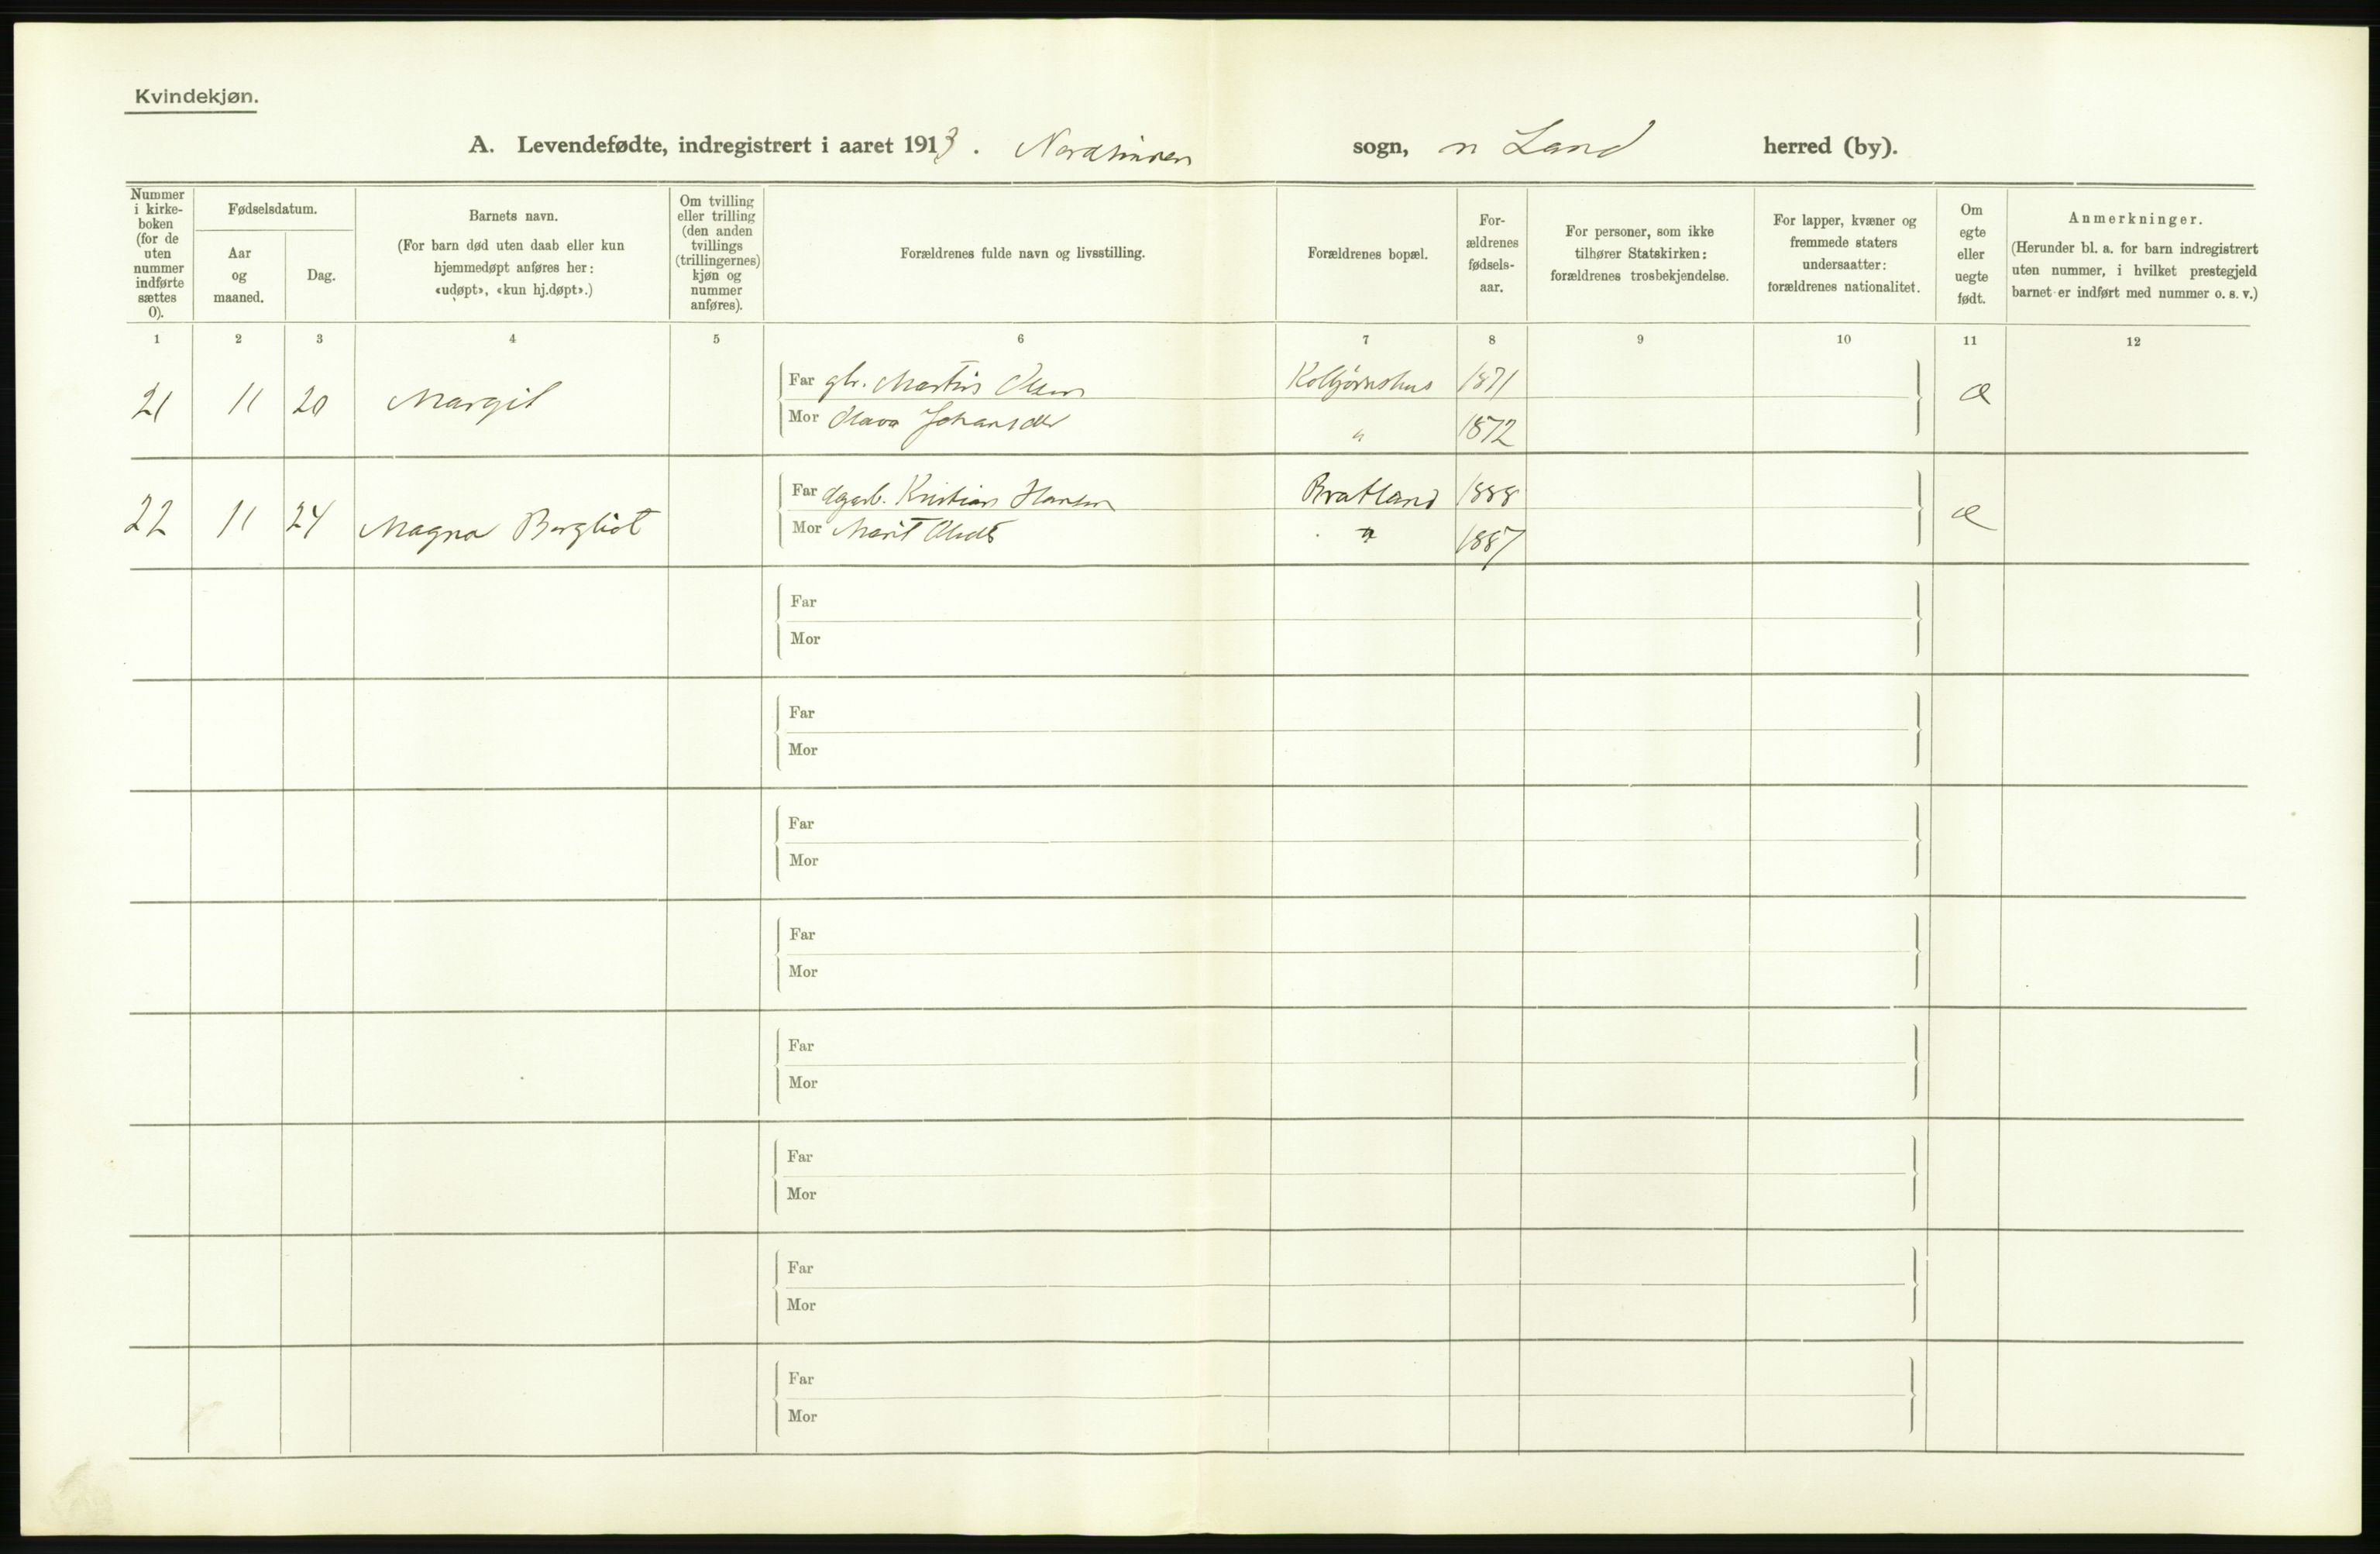 Kvindekjøn.
A. Levendefødte, indregistrert i aaret 1913. Nordsinnen sogn, n Land herred (by).
Nummer i kirke-boken (for de uten nummer indførte sættes 0).
Fødselsdatum.
Aar og maaned.
Dag.
Barnets navn.
(For barn død uten daab eller kun
hjemmedøpt anføres her:
«udøpt», «kun hj.døpt».)
Om tvilling
eller trilling
(den anden
tvillings
(trillingernes)
kjøn og
nummer
anføres).
Forældrenes fulde navn og livsstilling.
Forældrenes bopæl.
For-
ældrenes
fødsels-
aar.
For personer, som ikke
tilhører Statskirken:
forældrenes trosbekjendelse.
For lapper, kvæner og
fremmede staters
undersaatter:
forældrenes nationalitet.
Om
egte
eller
uegte
født.
Anmerkninger.
(Herunder bl. a. for barn indregistrert
uten nummer, i hvilket prestegjeld
barnet er indført med nummer o. s. v.)
1 2 3 4 5 6 7 8 9 10 11 12
Far gbr. Martin Olsen Kolbjørnshus 1871
21 11 20 Margit æ
Mor Olava Johansdtr " 1872
Far dagarb. Kristian Hansen Bratland 1888
22 11 24 Magna Bergliot æ
Mor Marit Olsdt " 1887
Far
Mor
Far
Mor
Far
Mor
Far
Mor
Far
Mor
Far
Mor
Far
Mor
Far
Mor